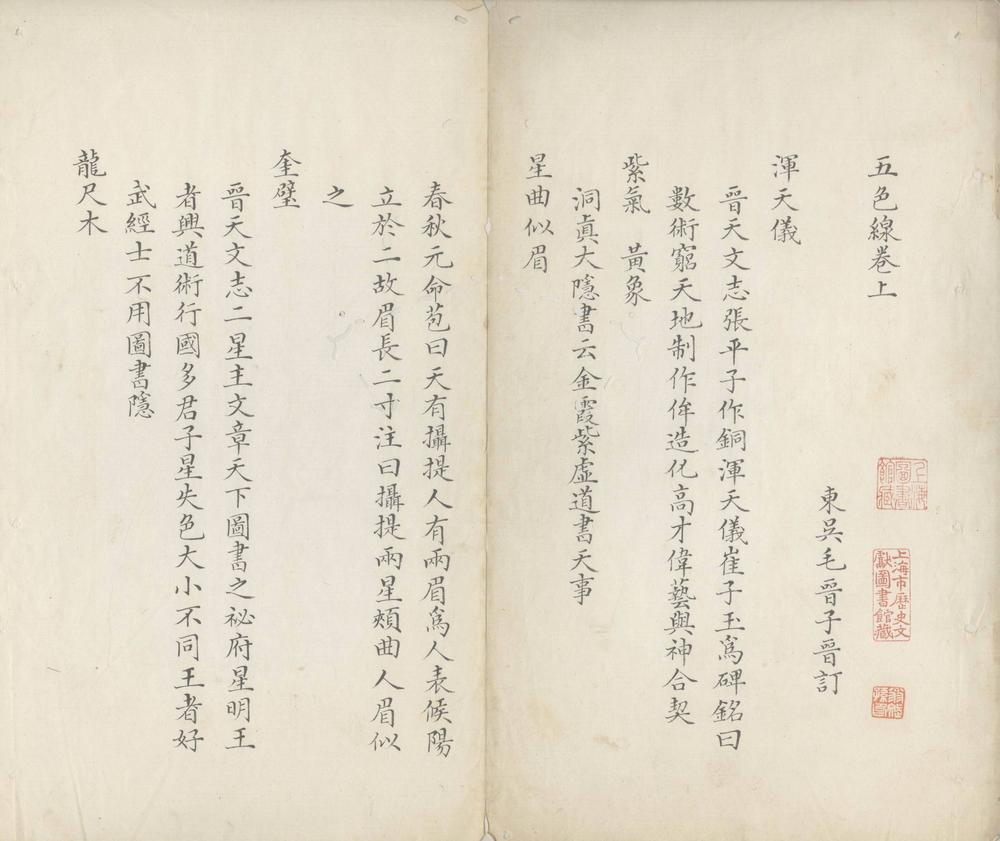 五色線卷上
上海圖書館藏
上海市歷史文獻圖書館藏
東吳毛晉子晉訂
渾天儀
晉天文志張平子作銅渾天儀崔子玉爲碑銘曰
數術窮天地制作侔造化高才偉藝與神合契
紫氣　黃象
洞眞大隱書云金霞紫虛道書天事
星曲似眉
春秋元命苞曰天有攝提人有兩眉爲人表候陽
立於二故眉長二寸注曰攝提兩星頰曲人眉似
之
奎璧
晉天文志二星主文章天下圖書之祕府星明王
者興道術行國多君子星失色大小不同王者好
武經士不用圖書隱
龍尺木